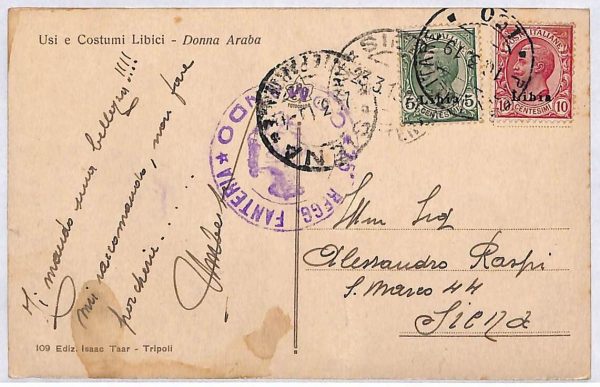 Usi e Costumi Libici - Donna Araba
Ti mando una bellezza!!!!
mi raccomando, non fare
porcherie......
Umberto
109 Ediz. Isaac Taar - Tripoli
REGG. FANTERIA
SIENA
POSTE ITALIANE
Libia
5 5
CENTESIMI
POSTE ITALIANE
Libia
10 10
CENTESIMI
Sig
Alessandro Raspi
S. Marco 44
Siena